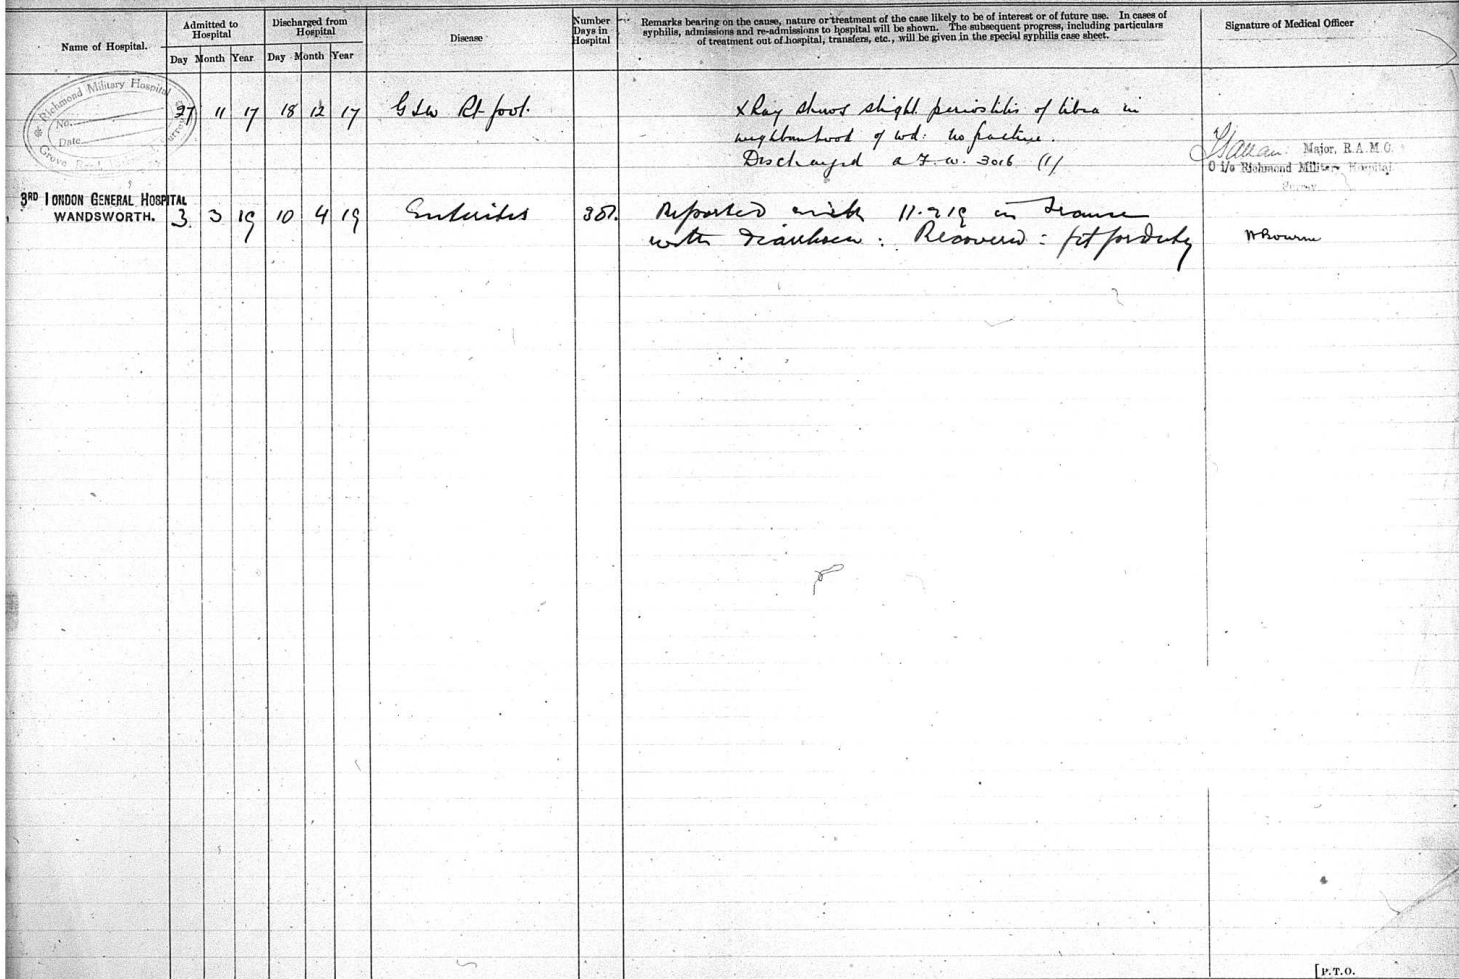 Name of Hospital.
Admitted to
Hospital
Day Month Year
Discharged from
Hospital
Day Month Year
Disease
Number
Days in
Hospital
Remarks bearing on the cause, nature or treatment of the case likely to be of interest or of future use. In cases of
syphilis, admissions and re-admissions to hospital will be shown. The subsequent progress, including particulars
of treatment out of hospital, transfers, etc., will be given in the special syphilis case sheet.
Signature of Medical Officer
Richmond Military Hospital
No.
Date
Grove Road
27 11 17 18 12 17
G S W Rt foot.
X Ray shows slight periostitis of tibia in
neighbourhood of wd: no fracture.
Discharged a F. w. 3016 (1)
Major, R.A.M.C.
O i/c Richmond Military Hospital
Surrey
3RD LONDON GENERAL HOSPITAL
WANDSWORTH.
3 3 19 10 4 19
Enteritis
Reported sick 11.2.19 in France
with diarrhoea : Recovered : fit for duty
[P.T.O.